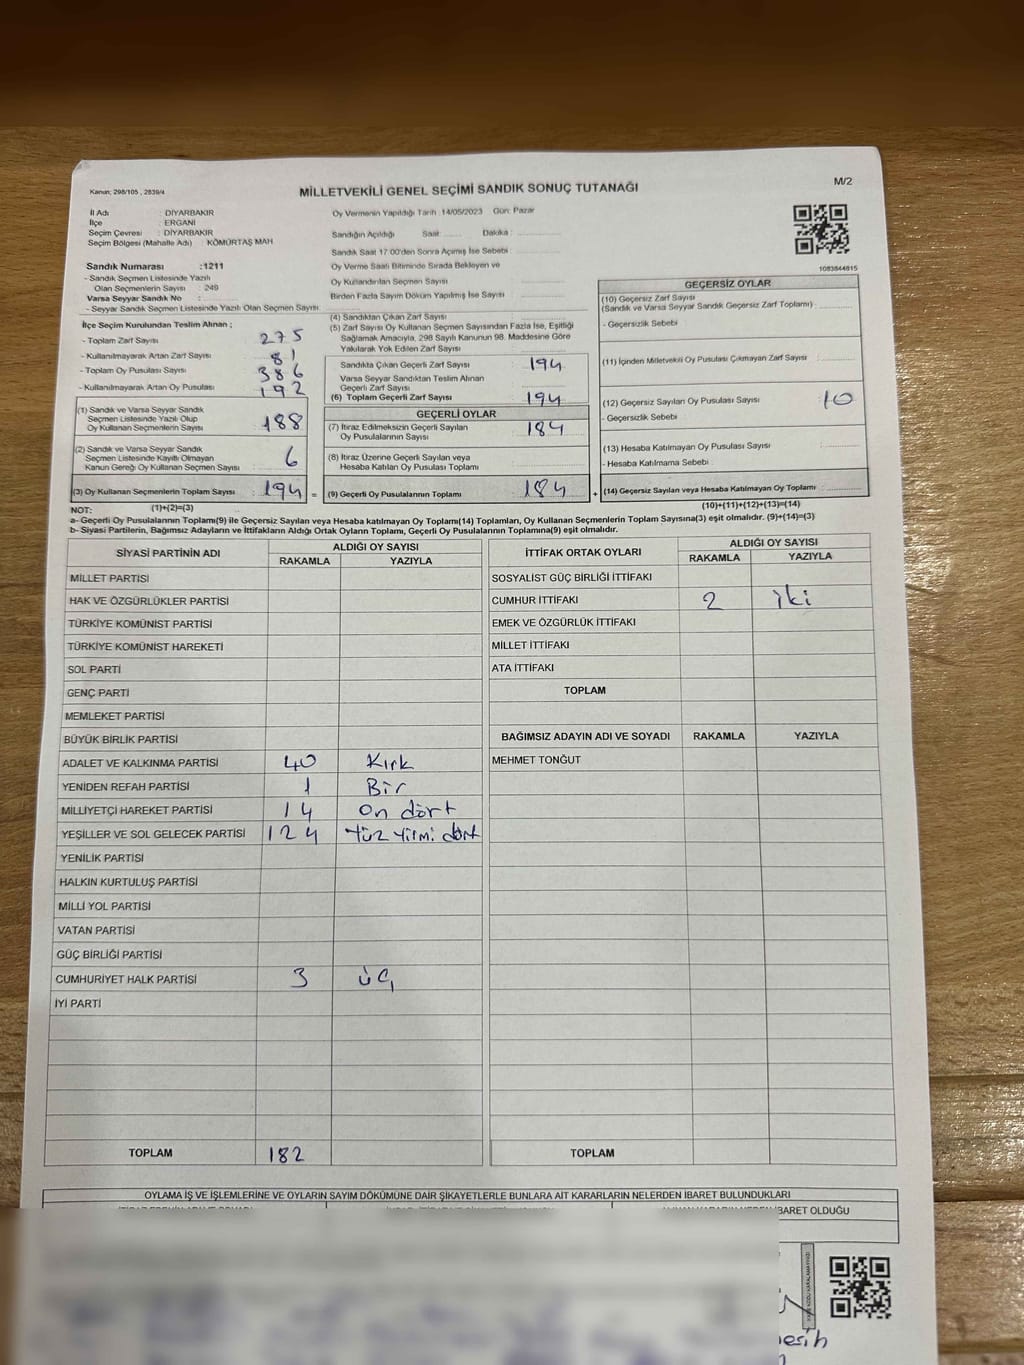 Kanun: 298/105 , 2839/4
MİLLETVEKİLİ GENEL SEÇİMİ SANDIK SONUÇ TUTANAĞI
M/2
İl Adı : DİYARBAKIR
İlçe : ERGANİ
Seçim Çevresi : DİYARBAKIR
Seçim Bölgesi (Mahalle Adı) KÖMÜRTAŞ MAH
Sandık Numarası :1211
- Sandık Seçmen Listesinde Yazılı
Olan Seçmenlerin Sayısı : 249
Varsa Seyyar Sandık No :
- Seyyar Sandık Seçmen Listesinde Yazılı Olan Seçmen Sayısı
İlçe Seçim Kurulundan Teslim Alınan ;
- Toplam Zarf Sayısı 275
- Kullanılmayarak Artan Zarf Sayısı 81
- Toplam Oy Pusulası Sayısı 386
- Kullanılmayarak Artan Oy Pusulası 192
(1) Sandık ve Varsa Seyyar Sandık
Seçmen Listesinde Yazılı Olup
Oy Kullanan Seçmenlerin Sayısı 188
(2) Sandık ve Varsa Seyyar Sandık
Seçmen Listesinde Kayıtlı Olmayan
Kanun Gereği Oy Kullanan Seçmen Sayısı 6
(3) Oy Kullanan Seçmenlerin Toplam Sayısı : 194 =
(1)+(2)=(3)
Oy Vermenin Yapıldığı Tarih :14/05/2023 Gün: Pazar
Sandığın Açıldığı Saat: Dakika :
Sandık Saat 17:00'den Sonra Açımış İse Sebebi :
Oy Verme Saati Bitiminde Sırada Bekleyen ve
Oy Kullandırılan Seçmen Sayısı
Birden Fazla Sayım Döküm Yapılmış İse Sayısı
(4) Sandıktan Çıkan Zarf Sayısı
(5) Zarf Sayısı Oy Kullanan Seçmen Sayısından Fazla İse, Eşitliği
Sağlamak Amacıyla, 298 Sayılı Kanunun 98. Maddesine Göre
Yakılarak Yok Edilen Zarf Sayısı
Sandıkta Çıkan Geçerli Zarf Sayısı 194
Varsa Seyyar Sandıktan Teslim Alınan
Geçerli Zarf Sayısı
(6) Toplam Geçerli Zarf Sayısı 194
GEÇERLİ OYLAR
(7) İtiraz Edilmeksizin Geçerli Sayılan
Oy Pusulalarının Sayısı 184
(8) İtiraz Üzerine Geçerli Sayılan veya
Hesaba Katılan Oy Pusulası Toplamı
(9) Geçerli Oy Pusulalarının Toplamı 184 +
1083844815
GEÇERSİZ OYLAR
(10) Geçersiz Zarf Sayısı
(Sandık ve Varsa Seyyar Sandık Geçersiz Zarf Toplamı) :
- Geçersizlik Sebebi
(11) İçinden Milletvekili Oy Pusulası Çıkmayan Zarf Sayısı
(12) Geçersiz Sayılan Oy Pusulası Sayısı 10
- Geçersizlik Sebebi
(13) Hesaba Katılmayan Oy Pusulası Sayısı
- Hesaba Katılmama Sebebi
(14) Geçersiz Sayılan veya Hesaba Katılmayan Oy Toplamı :
(10)+(11)+(12)+(13)=(14)
NOT:
a- Geçerli Oy Pusulalarının Toplamı(9) ile Geçersiz Sayılan veya Hesaba katılmayan Oy Toplamı(14) Toplamları, Oy Kullanan Seçmenlerin Toplam Sayısına(3) eşit olmalıdır. (9)+(14)=(3)
b- Siyasi Partilerin, Bağımsız Adayların ve İttifakların Aldığı Ortak Oyların Toplamı, Geçerli Oy Pusulalarının Toplamına(9) eşit olmalıdır.
SİYASİ PARTİNİN ADI ALDIĞI OY SAYISI
RAKAMLA YAZIYLA
MİLLET PARTİSİ
HAK VE ÖZGÜRLÜKLER PARTİSİ
TÜRKİYE KOMÜNİST PARTİSİ
TÜRKİYE KOMÜNİST HAREKETİ
SOL PARTİ
GENÇ PARTİ
MEMLEKET PARTİSİ
BÜYÜK BİRLİK PARTİSİ
ADALET VE KALKINMA PARTİSİ 40 Kırk
YENİDEN REFAH PARTİSİ 1 Bir
MİLLİYETÇİ HAREKET PARTİSİ 14 On dört
YEŞİLLER VE SOL GELECEK PARTİSİ 124 Yüz Yirmi dört
YENİLİK PARTİSİ
HALKIN KURTULUŞ PARTİSİ
MİLLİ YOL PARTİSİ
VATAN PARTİSİ
GÜÇ BİRLİĞİ PARTİSİ
CUMHURİYET HALK PARTİSİ 3 üç
İYİ PARTİ
TOPLAM 182
İTTİFAK ORTAK OYLARI ALDIĞI OY SAYISI
RAKAMLA YAZIYLA
SOSYALİST GÜÇ BİRLİĞİ İTTİFAKI
CUMHUR İTTİFAKI 2 iki
EMEK VE ÖZGÜRLÜK İTTİFAKI
MİLLET İTTİFAKI
ATA İTTİFAKI
TOPLAM
BAĞIMSIZ ADAYIN ADI VE SOYADI RAKAMLA YAZIYLA
MEHMET TONĞUT
TOPLAM
OYLAMA İŞ VE İŞLEMLERİNE VE OYLARIN SAYIM DÖKÜMÜNE DAİR ŞİKAYETLERLE BUNLARA AİT KARARLARIN NELERDEN İBARET BULUNDUKLARI
İBARET OLDUĞU